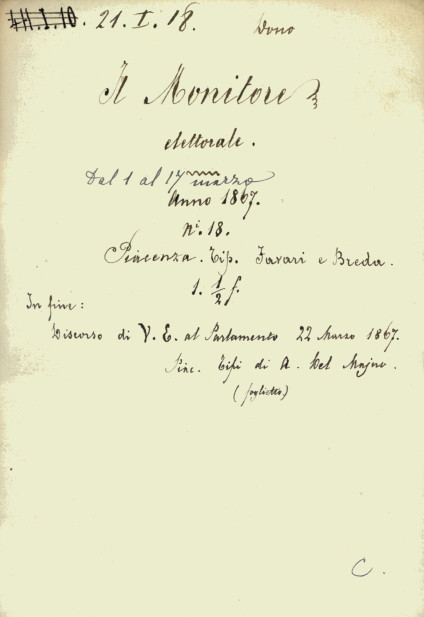 4H.I.10. 21. I. 18. Dono
Il Monitore
elettorale.
Dal 1 al 17 marzo
Anno 1867.
Ni. 13.
Piacenza. Tip. Favari e Breda.
1. 1/2 f.
In fine:
Discorso di V. E. al Parlamento 22 Marzo 1867.
Piac. Tipi di A. Del Majno.
(foglietto)
C.